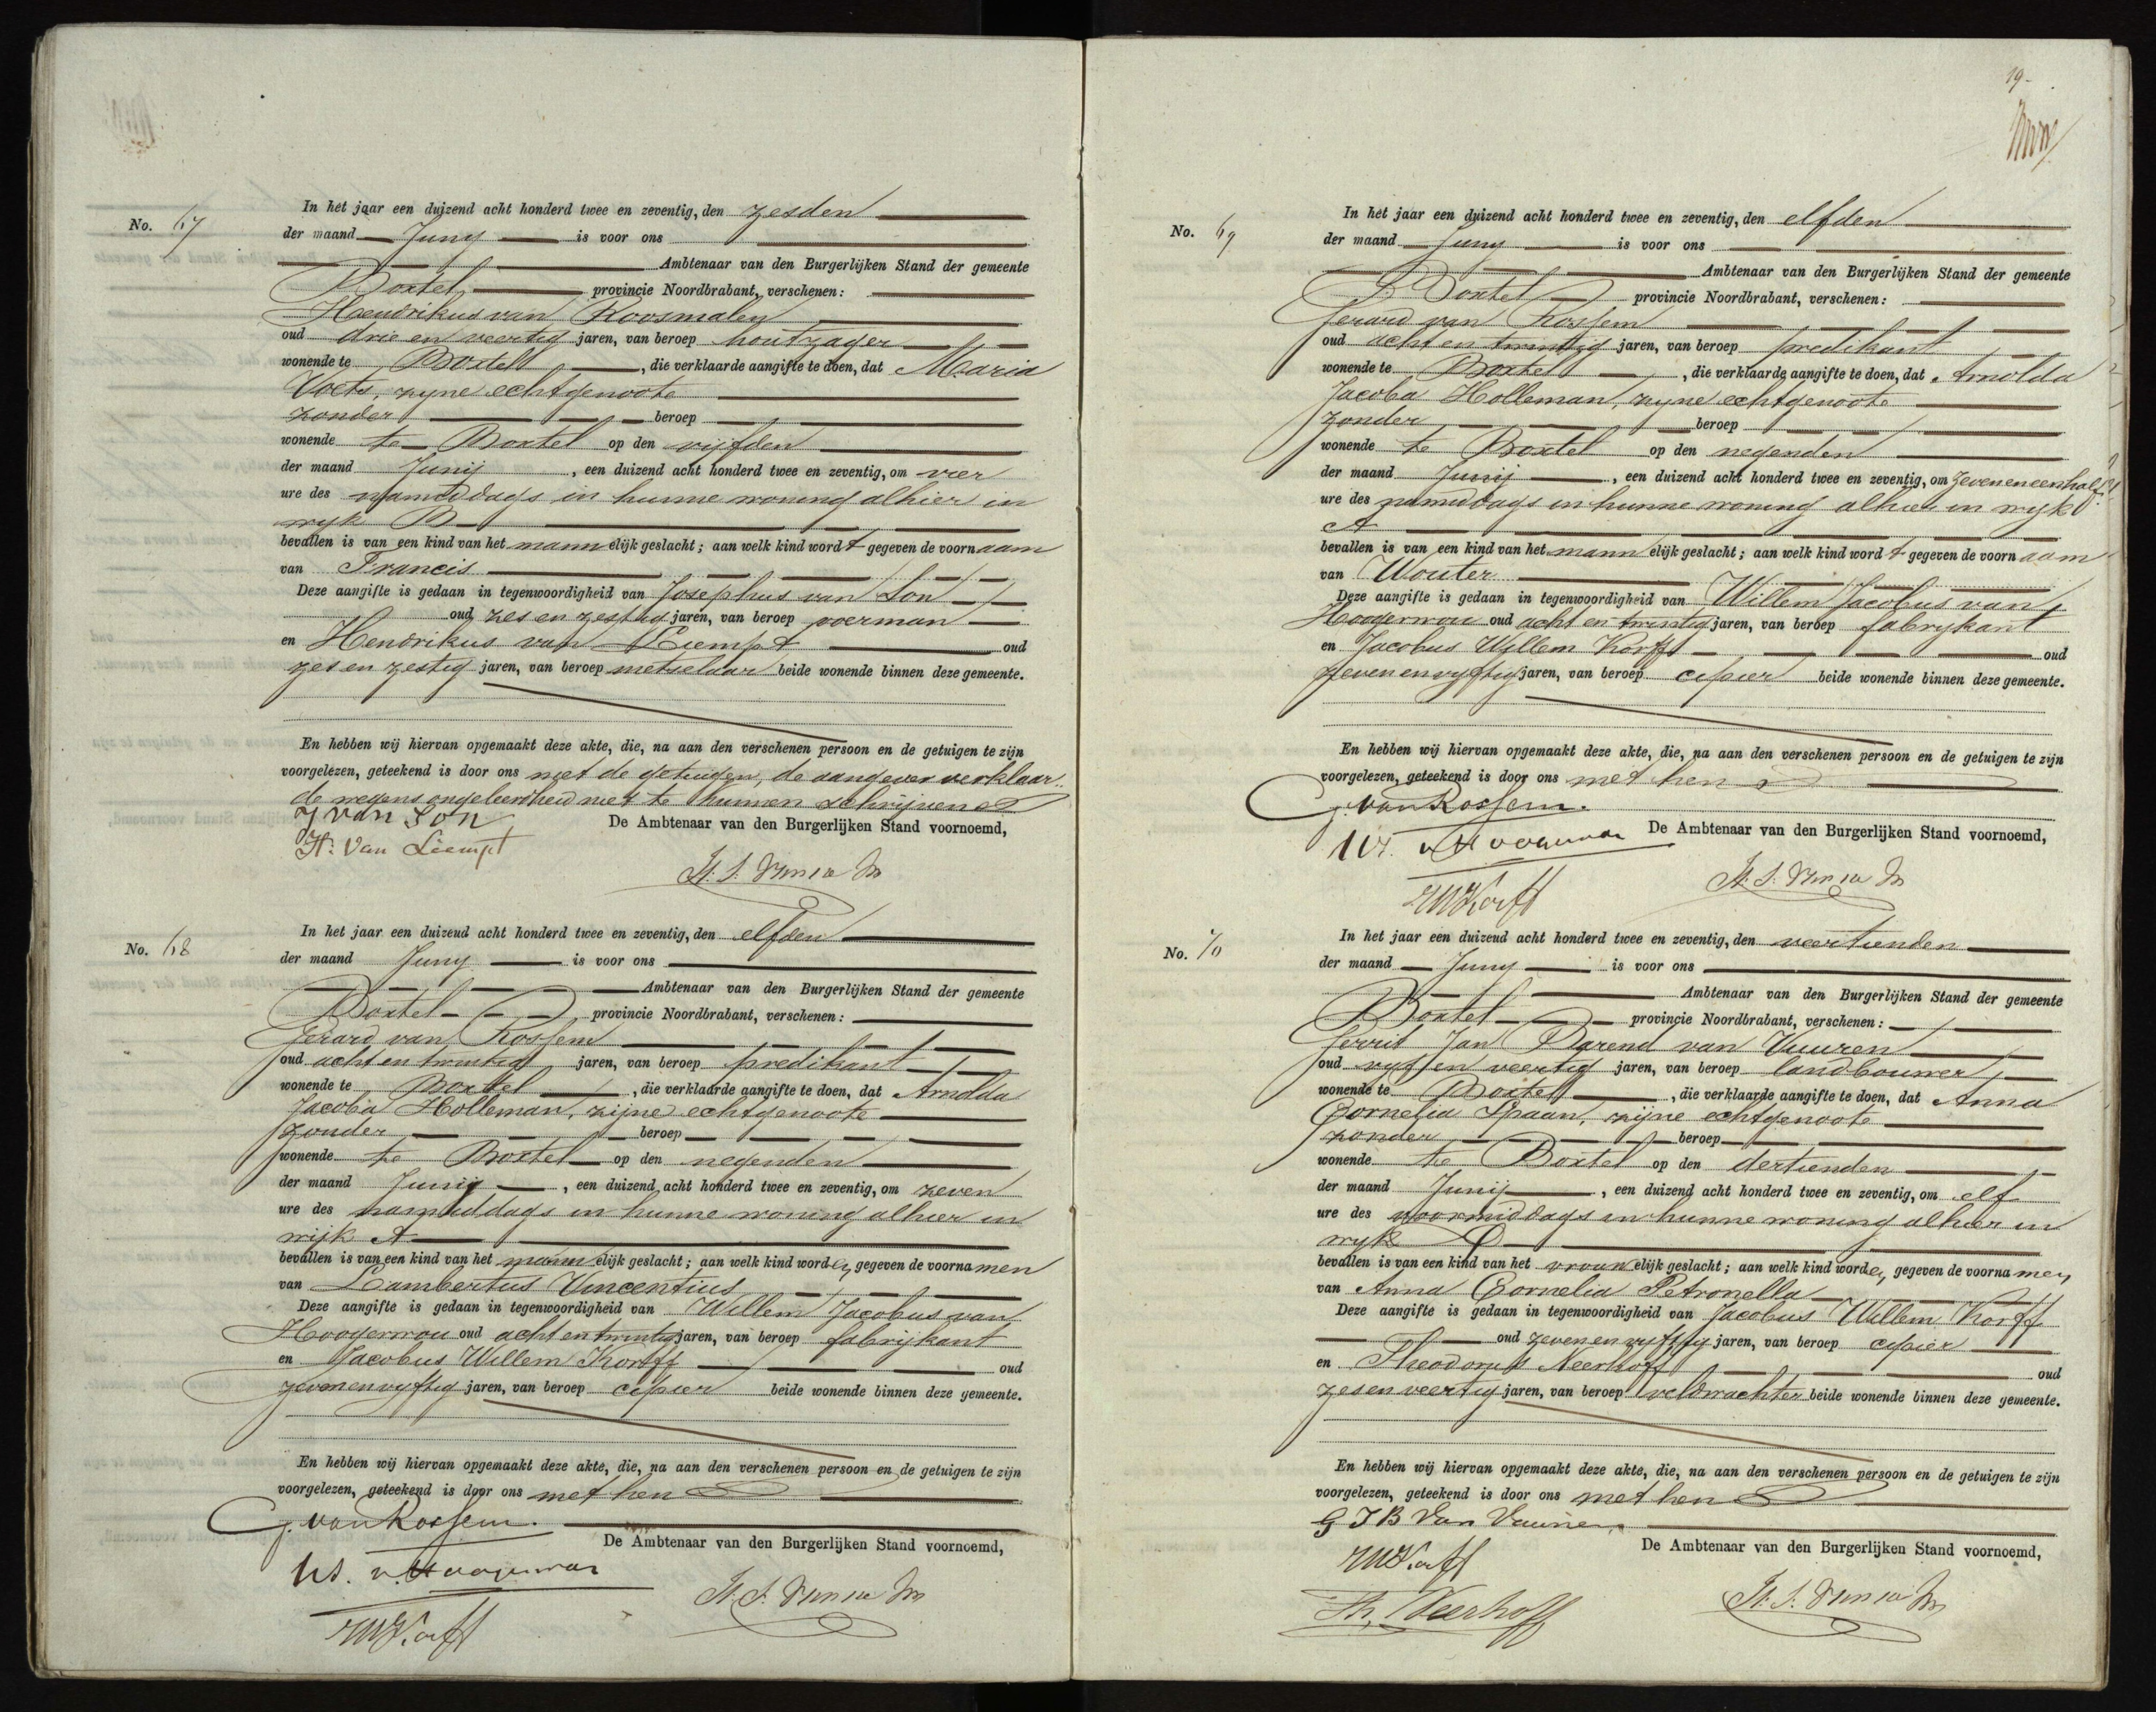 No. 67
In het jaar een duizend acht honderd twee en zeventig, den zesden
der maand Juny is voor ons
Ambtenaar van den Burgerlijken Stand der gemeente
Boxtel provincie Noordbrabant, verschenen:
Hendrikus van Roosmalen
oud drie en veertig jaren, van beroep houtzager
wonende te Boxtel, die verklaarde aangifte te doen, dat Maria
Voets, zyne echtgenoote
zonder beroep
wonende te Boxtel op den vijfden
der maand Junij, een duizend acht honderd twee en zeventig, om vier
ure des namiddags in hunne woning alhier in
wyk B
bevallen is van een kind van het mannelijk geslacht; aan welk kind wordt gegeven de voornaam
van Francis
Deze aangifte is gedaan in tegenwoordigheid van Josephus van Son
oud zes en zestig jaren, van beroep voerman
en Hendrikus van Liempt oud
zes en zestig jaren, van beroep metselaar beide wonende binnen deze gemeente.
En hebben wij hiervan opgemaakt deze akte, die, na aan den verschenen persoon en de getuigen te zijn
voorgelezen, geteekend is door ons met de getuigen, de aangever verklaar-
de wegens ongeleerdheid niet te kunnen schrijven
J van Son
De Ambtenaar van den Burgerlijken Stand voornoemd,
H. Van Liempt
No. 68
In het jaar een duizend acht honderd twee en zeventig, den elfden
der maand Juny is voor ons
Ambtenaar van den Burgerlijken Stand der gemeente
Boxtel provincie Noordbrabant, verschenen:
Gerard van Rossem
oud acht en twintig jaren, van beroep predikant
wonende te Boxtel, die verklaarde aangifte te doen, dat Arnolda
Jacoba Holleman, zijne echtgenoote
zonder beroep
wonende te Boxtel op den negenden
der maand Junij, een duizend acht honderd twee en zeventig, om zeven
ure des namiddags in hunne woning alhier in
wijk A
bevallen is van een kind van het mannelijk geslacht; aan welk kind worden gegeven de voornamen
van Lambertus Vincentius
Deze aangifte is gedaan in tegenwoordigheid van Willem Jacobus van
Hoogerwou oud acht en twintig jaren, van beroep fabrijkant
en Jacobus Willem Korff oud
zevenenvyftig jaren, van beroep cipier beide wonende binnen deze gemeente.
En hebben wij hiervan opgemaakt deze akte, die, na aan den verschenen persoon en de getuigen te zijn
voorgelezen, geteekend is door ons met hen
G. van Rossem.
De Ambtenaar van den Burgerlijken Stand voornoemd,
JWKorff
19
No. 69
In het jaar een duizend acht honderd twee en zeventig, den elfden
der maand Juny is voor ons
Ambtenaar van den Burgerlijken Stand der gemeente
Boxtel provincie Noordbrabant, verschenen:
Gerard van Rossem
oud acht en twintig jaren, van beroep predikant
wonende te Boxtel, die verklaarde aangifte te doen, dat Arnolda
Jacoba Holleman, zyne echtgenoote
zonder beroep
wonende te Boxtel op den negenden
der maand Junij, een duizend acht honderd twee en zeventig, om zeveneneenhalf
ure des namiddags in hunne woning alhier in wyk
A
bevallen is van een kind van het mannelijk geslacht; aan welk kind wordt gegeven de voornaam
van Wouter
Deze aangifte is gedaan in tegenwoordigheid van Willem Jacobus van
Hoogerwou oud acht en twintig jaren, van beroep fabrykant
en Jacobus Willem Korff oud
zevenenvyftig jaren, van beroep cipier beide wonende binnen deze gemeente.
En hebben wij hiervan opgemaakt deze akte, die, na aan den verschenen persoon en de getuigen te zijn
voorgelezen, geteekend is door ons met hen
G. van Rossem.
De Ambtenaar van den Burgerlijken Stand voornoemd,
JWKorff
No. 70
In het jaar een duizend acht honderd twee en zeventig, den veertienden
der maand Juny is voor ons
Ambtenaar van den Burgerlijken Stand der gemeente
Boxtel provincie Noordbrabant, verschenen:
Gerrit Jan Barend van Vuuren
oud vyf en veertig jaren, van beroep landbouwer
wonende te Boxtel, die verklaarde aangifte te doen, dat Anna
Cornelia Spaan, zijne echtgenoote
zonder beroep
wonende te Boxtel op den dertienden
der maand Junij, een duizend acht honderd twee en zeventig, om elf
ure des voormiddags in hunne woning alhier in
wyk
bevallen is van een kind van het vrouwelijk geslacht; aan welk kind worden gegeven de voornamen
van Anna Cornelia Petronella
Deze aangifte is gedaan in tegenwoordigheid van Jacobus Willem Korff
oud zevenenvyftig jaren, van beroep cipier
en Theodorus Neerhoff oud
zesenveertig jaren, van beroep veldwachter beide wonende binnen deze gemeente.
En hebben wij hiervan opgemaakt deze akte, die, na aan den verschenen persoon en de getuigen te zijn
voorgelezen, geteekend is door ons met hen
G J B Van Vuuren
De Ambtenaar van den Burgerlijken Stand voornoemd,
JWKorff
Th. Neerhoff